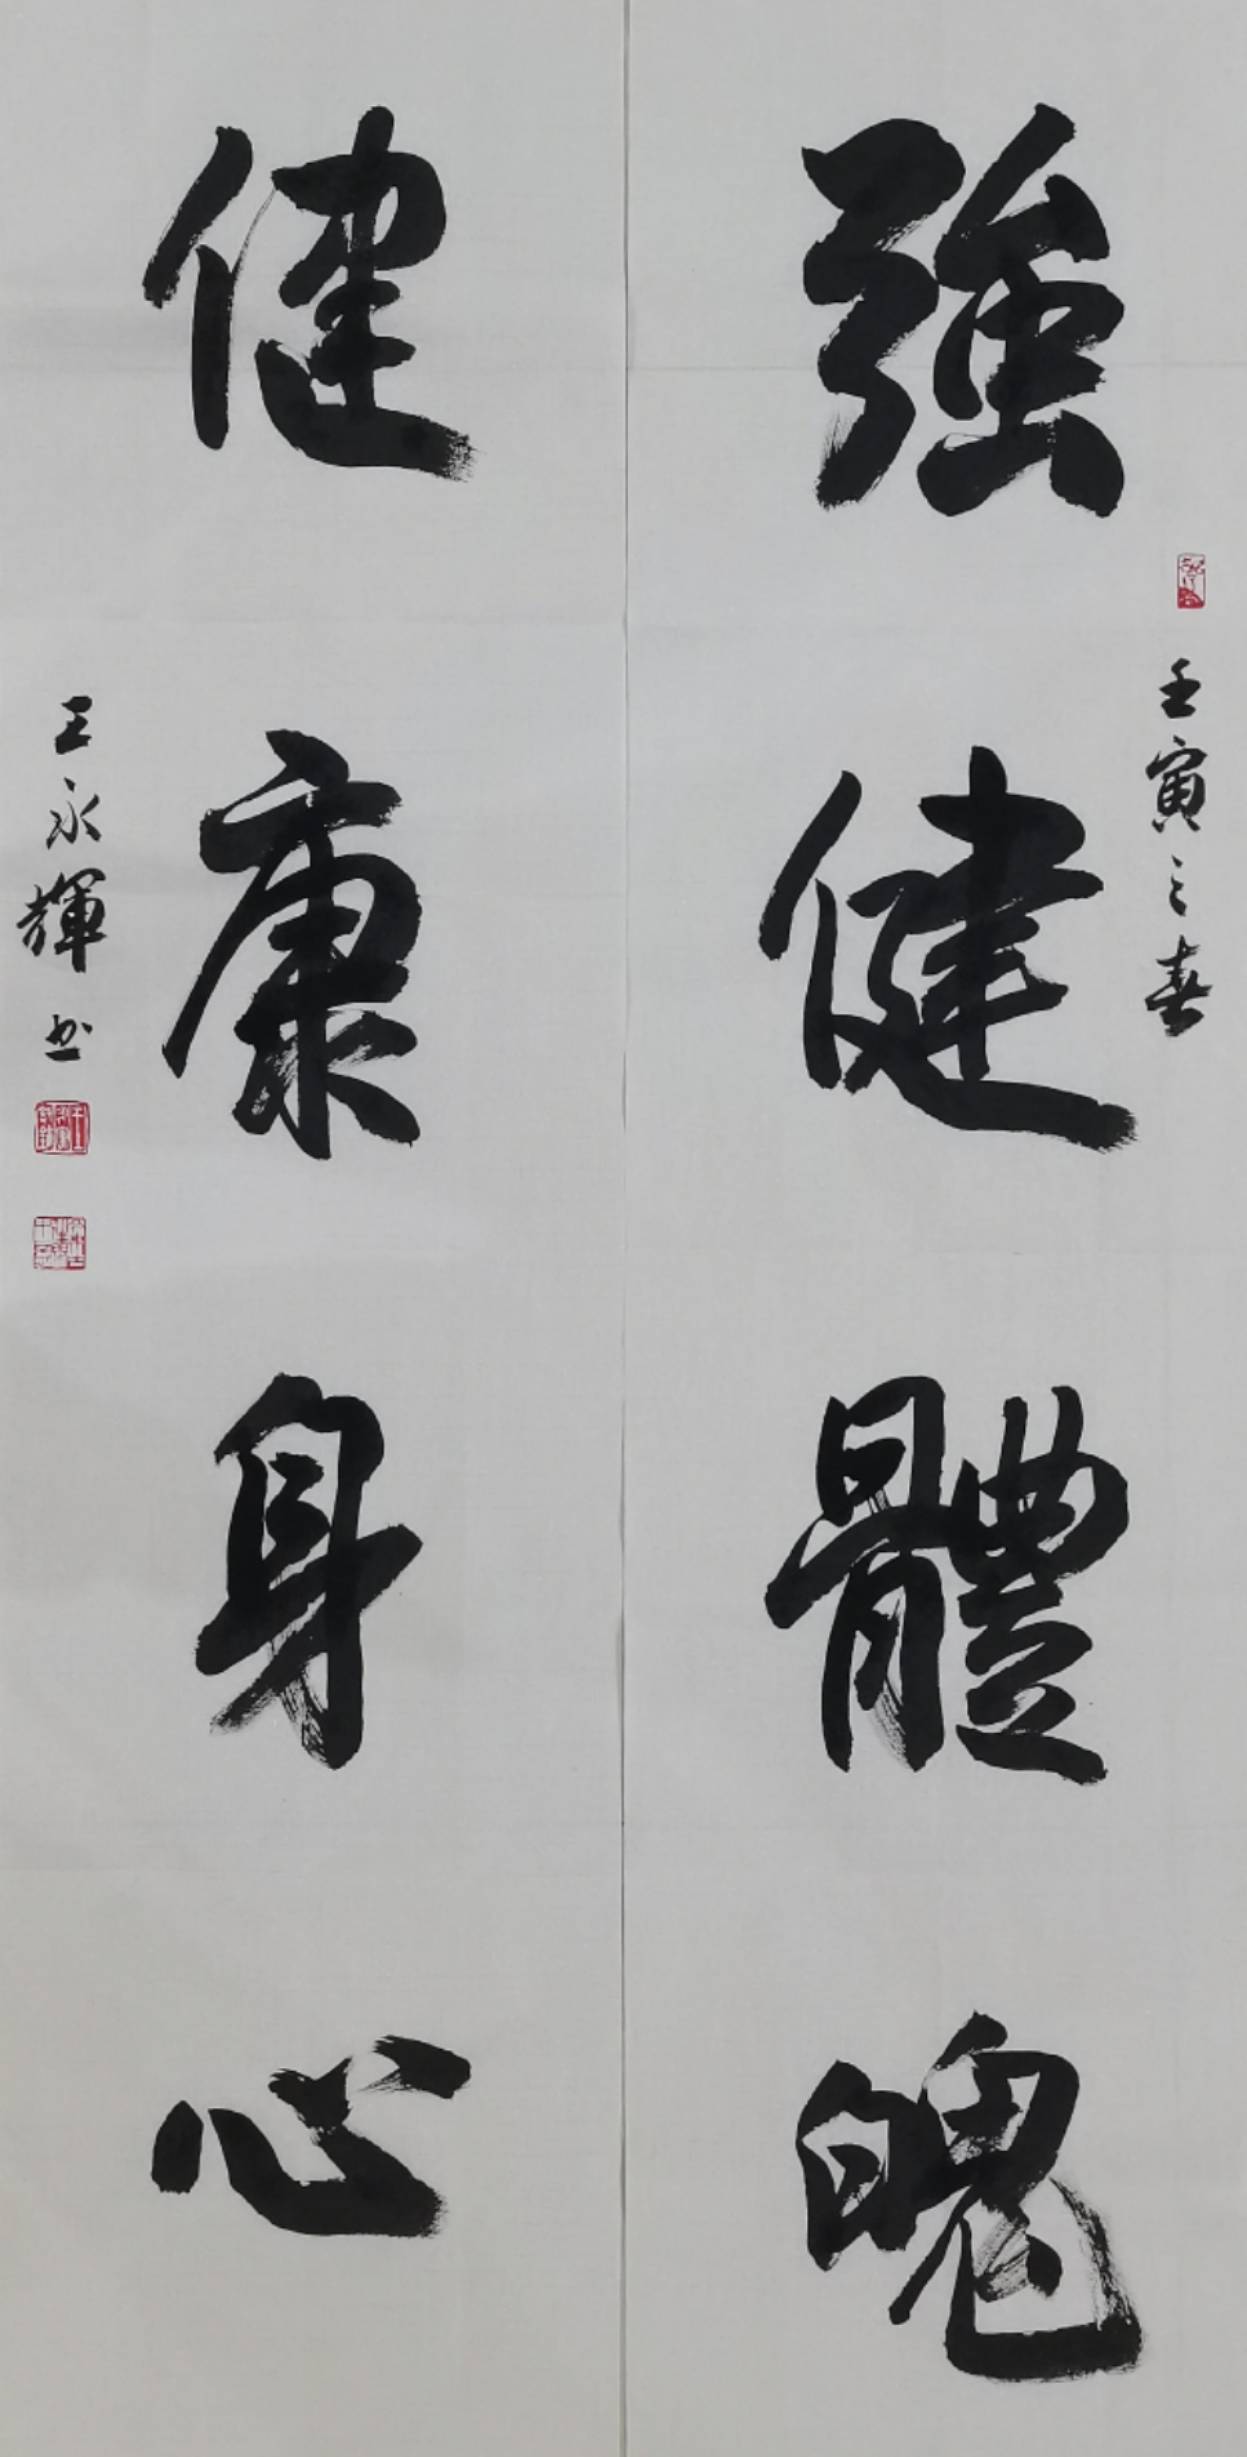 強健體魄
壬寅之春
健康身心
王永輝书